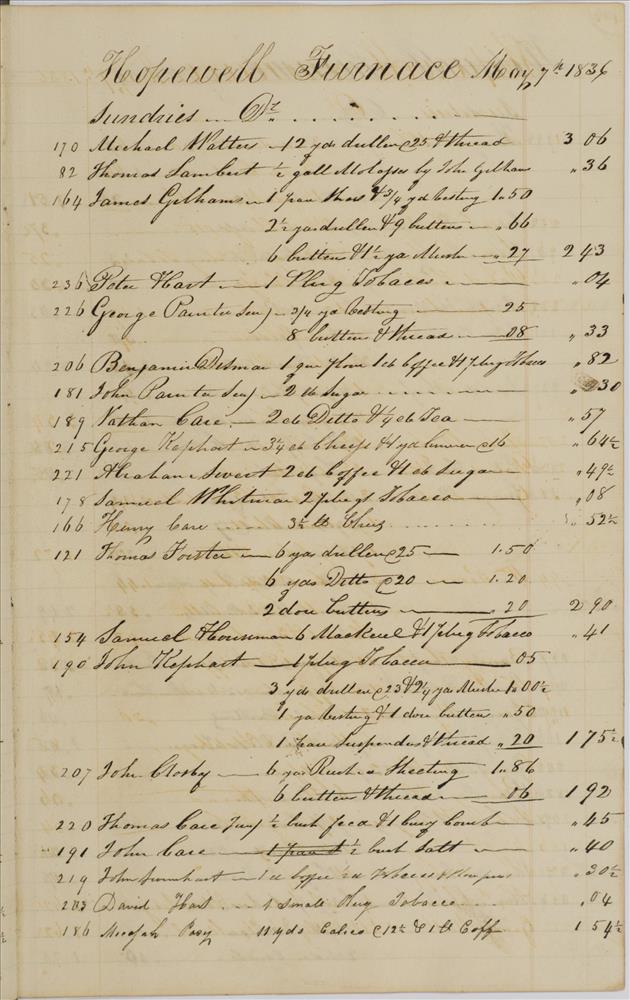 Hopewell Furnace May 7th 1836
Sundries Dr
170 Michael Watters 12 yds drillen @25 & thread 3 06
82 Thomas Lambert ½ gall Molasses by John Gelhams " 36
164 James Gelhams 1 pair & 3/4 yd vesting 1 " 50
2½ yds drillen & 9 buttons " 66
6 buttons & 1½ yd Muslin " 27 2 43
236 Peter Hart 1 Plug Tobacco " 04
226 George Painter Senr 3/4 yd vesting 25
8 buttons & thread 08 " 33
206 Benjamin 1 qr flour 1 lb Coffee & 1 plug Tobacco " 82
181 John Painter Senr 2 lb Sugar " 30
189 Nathan Care 2 lb Ditto & ¼ lb Tea " 57
215 George Kephart 3¼ lb Cheese & 1 yd @ 16 " 64½
221 Abraham Sweet 2 lb Coffee & 1 lb Sugar " 49½
178 Samuel Whitman 2 plugs Tobacco " 08
166 Henry Care 3½ lb Cheese " 52½
121 Thomas Foster 6 yds drillen @25 1 . 50
6 yds Ditto @20 1 . 20
2 doz buttons " 20 2 90
154 Samuel Houseman 6 Mackerel & 1 plug Tobacco " 41
190 John Kephart 1 plug Tobacco 05
3 yds drillen @23 & 2¼ yds Muslin 1 " 00½
1 yd vesting & 1 doz buttons " 50
1 pair Suspenders & thread " 20 1 75½
207 John Closby 6 yds Russia Sheeting 1 " 86
6 buttons & thread 06 1 92
220 Thomas Care Junr ½ bush feed & 1 Curry Comb " 45
191 John Care 1 pair S ½ bush Salt " 40
219 John 1 lb Coffee Tobacco & " 30½
203 David Hart 1 Small Plug Tobacco " 04
186 Micajah Posey 11 yds Calico @12½ & 1 lb Coff 1 54½